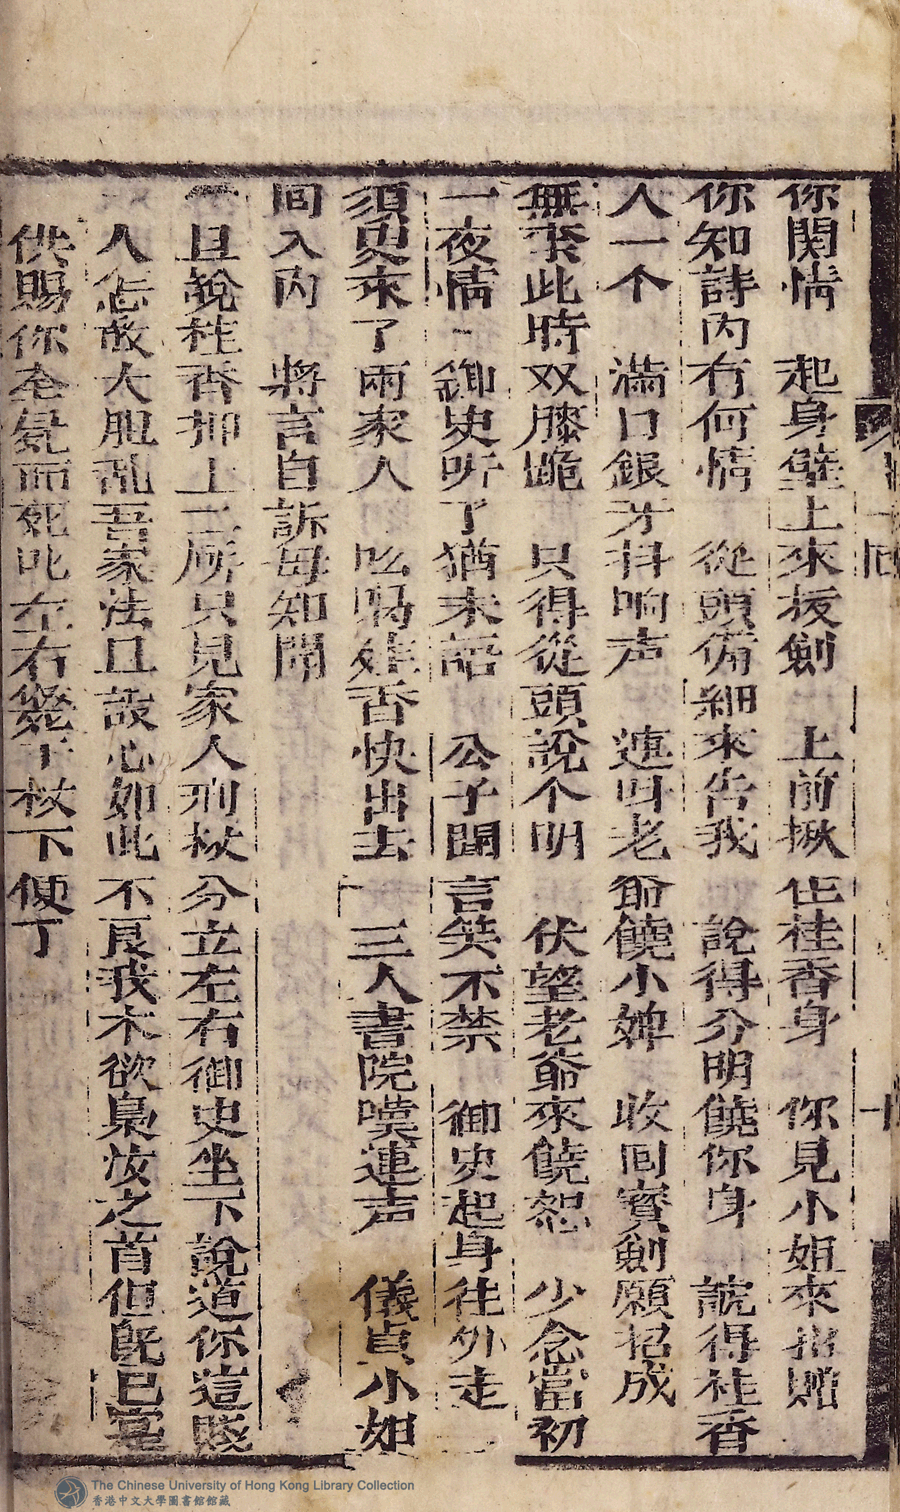 你関情　起身壁上來拔劍　上前揪住桂香身　你見小姐來招贈
你知詩內有何情　從頭俻細來告我　說得分明饒你身　諕得桂香
人一个　滿口銀牙抖响声　連叫老爺饒小婢　收回寳劍願招成
無柰此時双膝跪　只得從頭說个明　伏望老爺來饒恕　少念當初
一夜情　御史听了猶未語　公子聞言笑不禁　御史起身往外走
須臾來了兩家人　吆喝桂香快出去　三人書院嘆連声　儀貞小姐
回入內　將言自訴母知聞
一旦說桂香押上二㕔只見家人刑杖分立左右御史坐下說道你這賤
人怎敢大胆乱吾家法且設心如此不良我本欲梟汝之首但旣已寔
供賜你全屍而死叱左右斃于杖下便了
回
十
The Chinese University of Hong Kong Library Collection
香港中文大學圖書館館藏